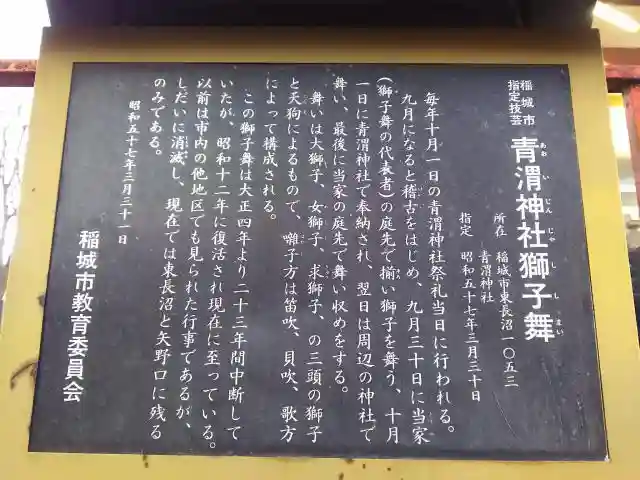 稲城市
指定技芸
青渭神社獅子舞
あおいじんじゃししまい
所在 稲城市東長沼一〇五三
青渭神社
指定 昭和五十七年三月三十日
毎年十月一日の青渭神社祭礼当日に行われる。
九月になると稽古をはじめ、九月三十日に当家
(獅子舞の代表者)の庭先で揃い獅子を舞う、十月
一日に青渭神社で奉納され、翌日は周辺の神社で
舞い、最後に当家の庭先で舞い収めをする。
舞いは大獅子、女獅子、求獅子、の三頭の獅子
と天狗によるもので、囃子方は笛吹、貝吹、歌方
によって構成される。
この獅子舞は大正四年より二十三年間中断して
いたが、昭和十二年に復活され現在に至っている。
以前は市内の他地区でも見られた行事であるが、
しだいに消滅し、現在では東長沼と矢野口に残る
のみである。
昭和五十七年三月三十一日
稲城市教育委員会